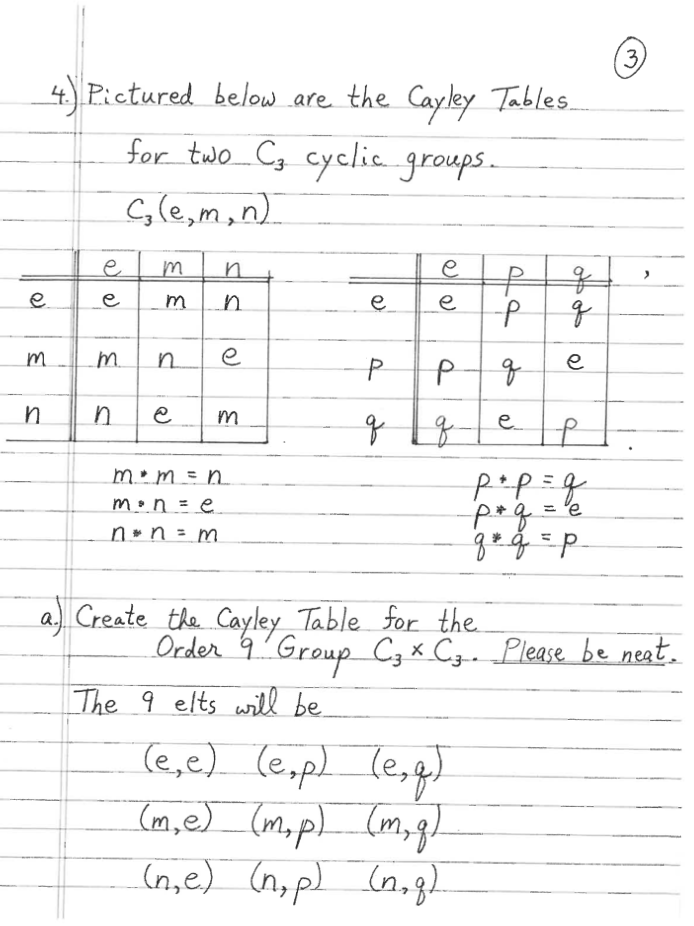 3
4.) Pictured below are the Cayley Tables
for two C₃ cyclic groups.
C₃(e,m,n)
e m n e p q ,
e e m n e e p q
m m n e p p q e
n n e m q q e p .
m * m = n p * p = q
m * n = e p * q = e
n * n = m q * q = p
a.) Create the Cayley Table for the
Order 9 Group C₃ × C₃. Please be neat.
The 9 elts will be
(e,e) (e,p) (e,q)
(m,e) (m,p) (m,q)
(n,e) (n,p) (n,q)